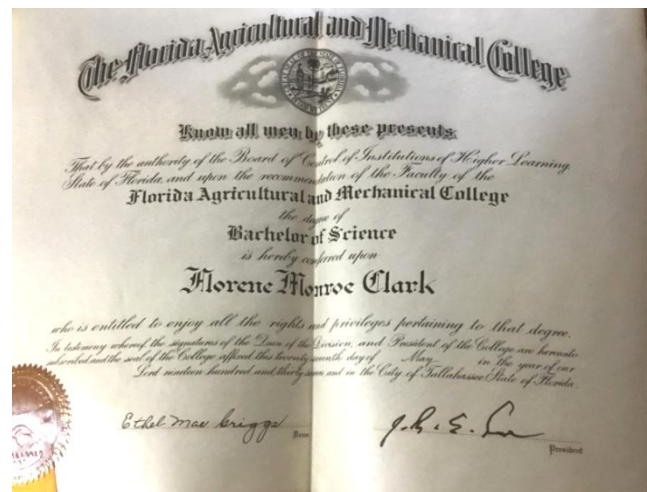 The Florida Agricultural and Mechanical College
Know all men by these presents
That by the authority of the Board of Control of Institutions of Higher Learning,
State of Florida, and upon the recommendation of the Faculty of the
Florida Agricultural and Mechanical College
the degree of
Bachelor of Science
is hereby conferred upon
Florene Monroe Clark
who is entitled to enjoy all the rights and privileges pertaining to that degree.
In testimony whereof, the signatures of the Dean of the Division, and President of the College are hereunto
subscribed and the seal of the College affixed this twenty seventh day of May in the year of our
Lord nineteen hundred and thirty seven and in the City of Tallahassee State of Florida.
Ethel Mae Griggs
Dean
President